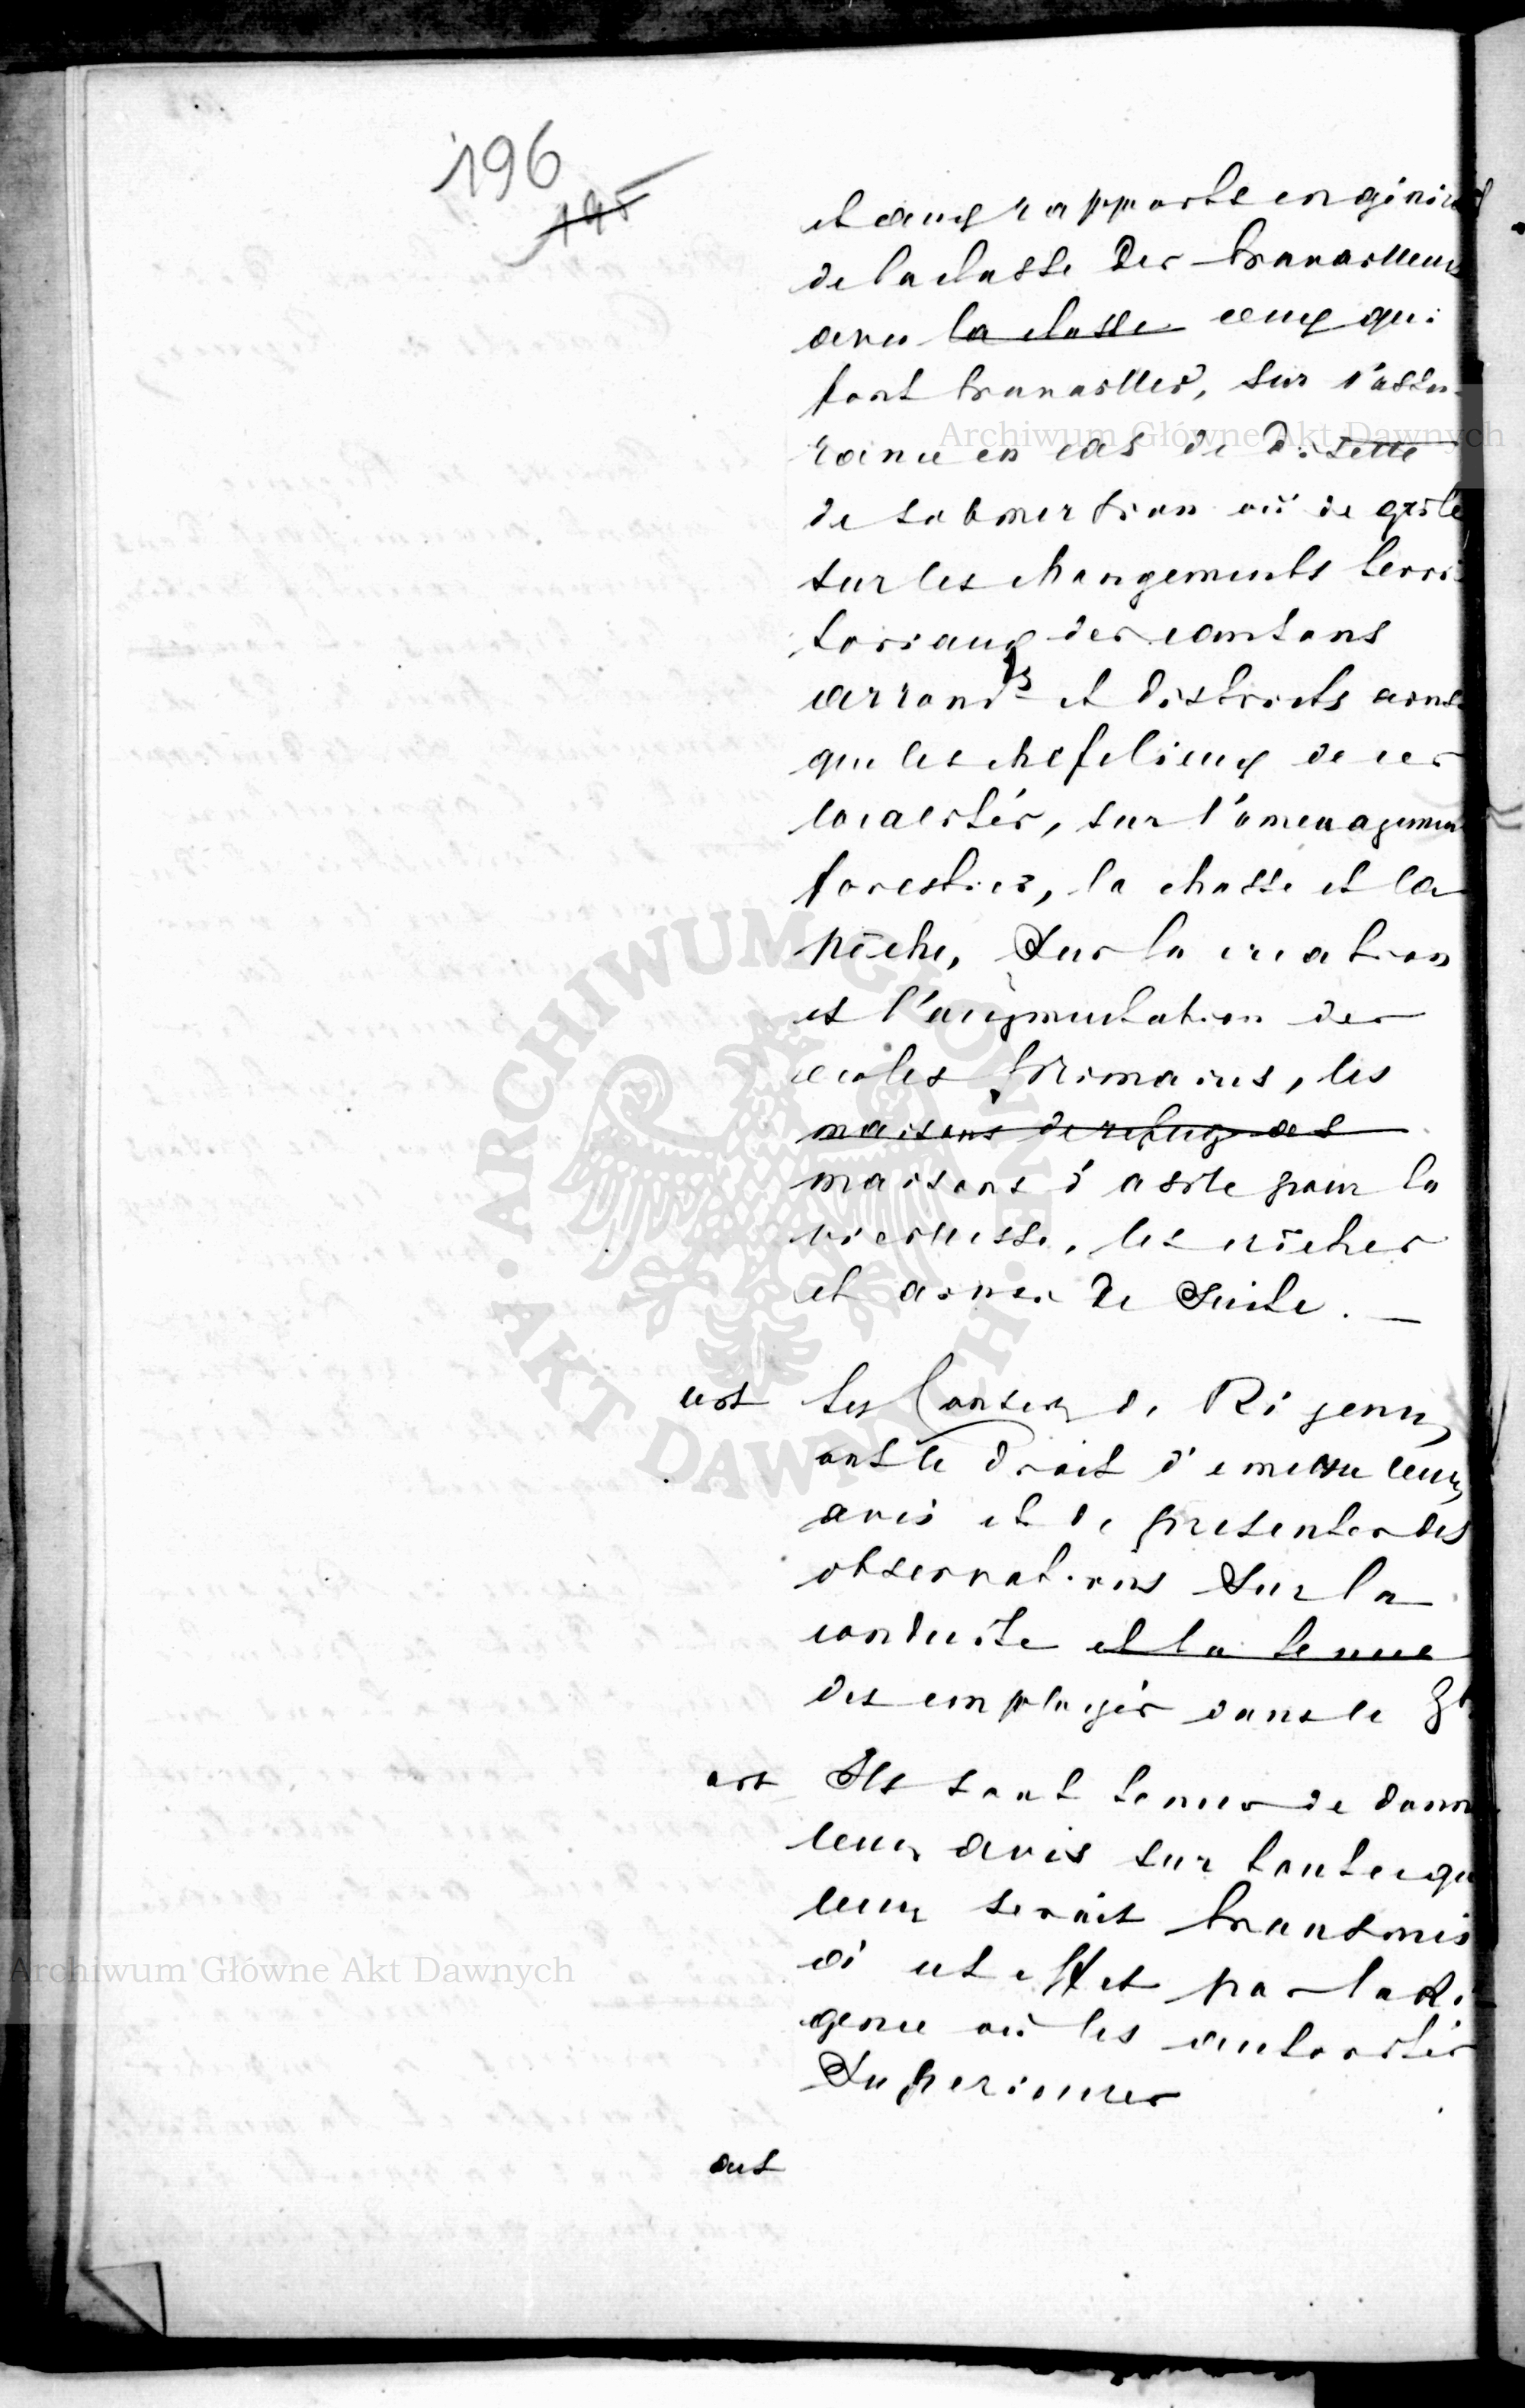 196
195
et aux rapports en général
de la classe des travailleurs
avec la classe ceux qui
font travailler, sur l'assu-
rance en cas de disette
de submersion où de grêle,
sur les changements terri
toriaux des cantons
arrondts et districts ainsi
que les chefs lieux de ces
localités, sur l'amenagement
forestier, la chasse et la
pêche, Sur la creation
et l'augmentation des
ecoles primaires, les
maisons de refuge des
maisons d'asile pour la
vieillesse, les crêches
et ainsi de Suite. —
art Les Conseils de Régence
ont le droit d'emettre leurs
avis et de presenter des
observations Sur la
conduite et la tenue
des employés dans le
art Ils sont tenus de donner
leurs avis sur tout ce qui
leurs serait transmis
à cet effet par la Ré
gence où les autorités
Superieures
art
Archiwum Główne Akt Dawnych
ARCHIWUM GŁÓWNE AKT DAWNYCH
Archiwum Główne Akt Dawnych